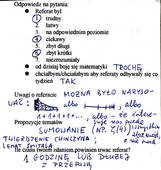 Odpowiedz na pytania:
Referat był
1) trudny
2) łatwy
3) na odpowiednim poziomie
4) ciekawy
5) zbyt długi
6) krótki
nieznośny
od dzisiaj boję się matematyki TROCHĘ
chciałbym/chciałabym aby referaty odbywały się co tydzień TAK
Uwagi o referacie: MOŻNA BYŁO NARYSO-
WAĆ: albo , albo
Propozycje tematów
SUMOWANIE (NP. ζ(4))
TWIERDZENIE CHIŃCZYKA;
LEMAT SPITALA
Ile czasu twoim zdaniem powinien trwać referat?
1 GODZINĘ LUB DŁUŻEJ
Z PRZERWĄ